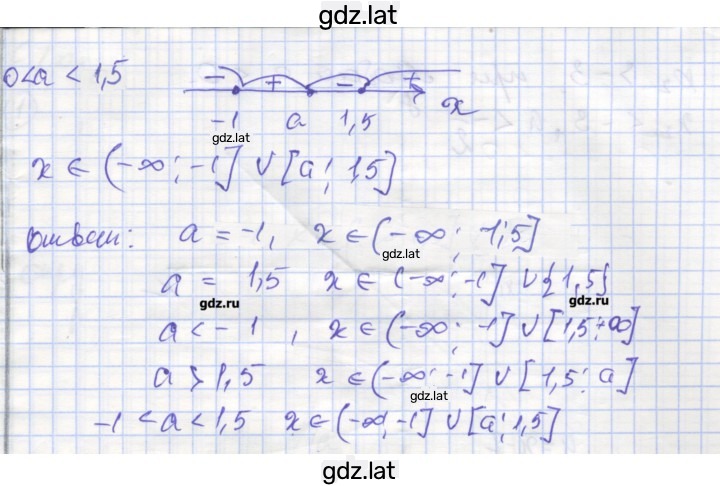 gdz.lat
0<a<1,5
− + − + x
-1 a 1,5
gdz.lat
x ∈ (-∞; -1] ∪ [a; 1,5]
Ответ: a = -1, x ∈ (-∞; 1,5]
gdz.lat
a = 1,5 x ∈ (-∞; -1] ∪ {1,5}
gdz.ru gdz.ru
a < -1, x ∈ (-∞; -1] ∪ [1,5; +∞]
gdz.lat
a > 1,5 x ∈ (-∞; -1] ∪ [1,5; a]
gdz.lat
-1 < a < 1,5 x ∈ (-∞; -1] ∪ [a; 1,5]
gdz.lat